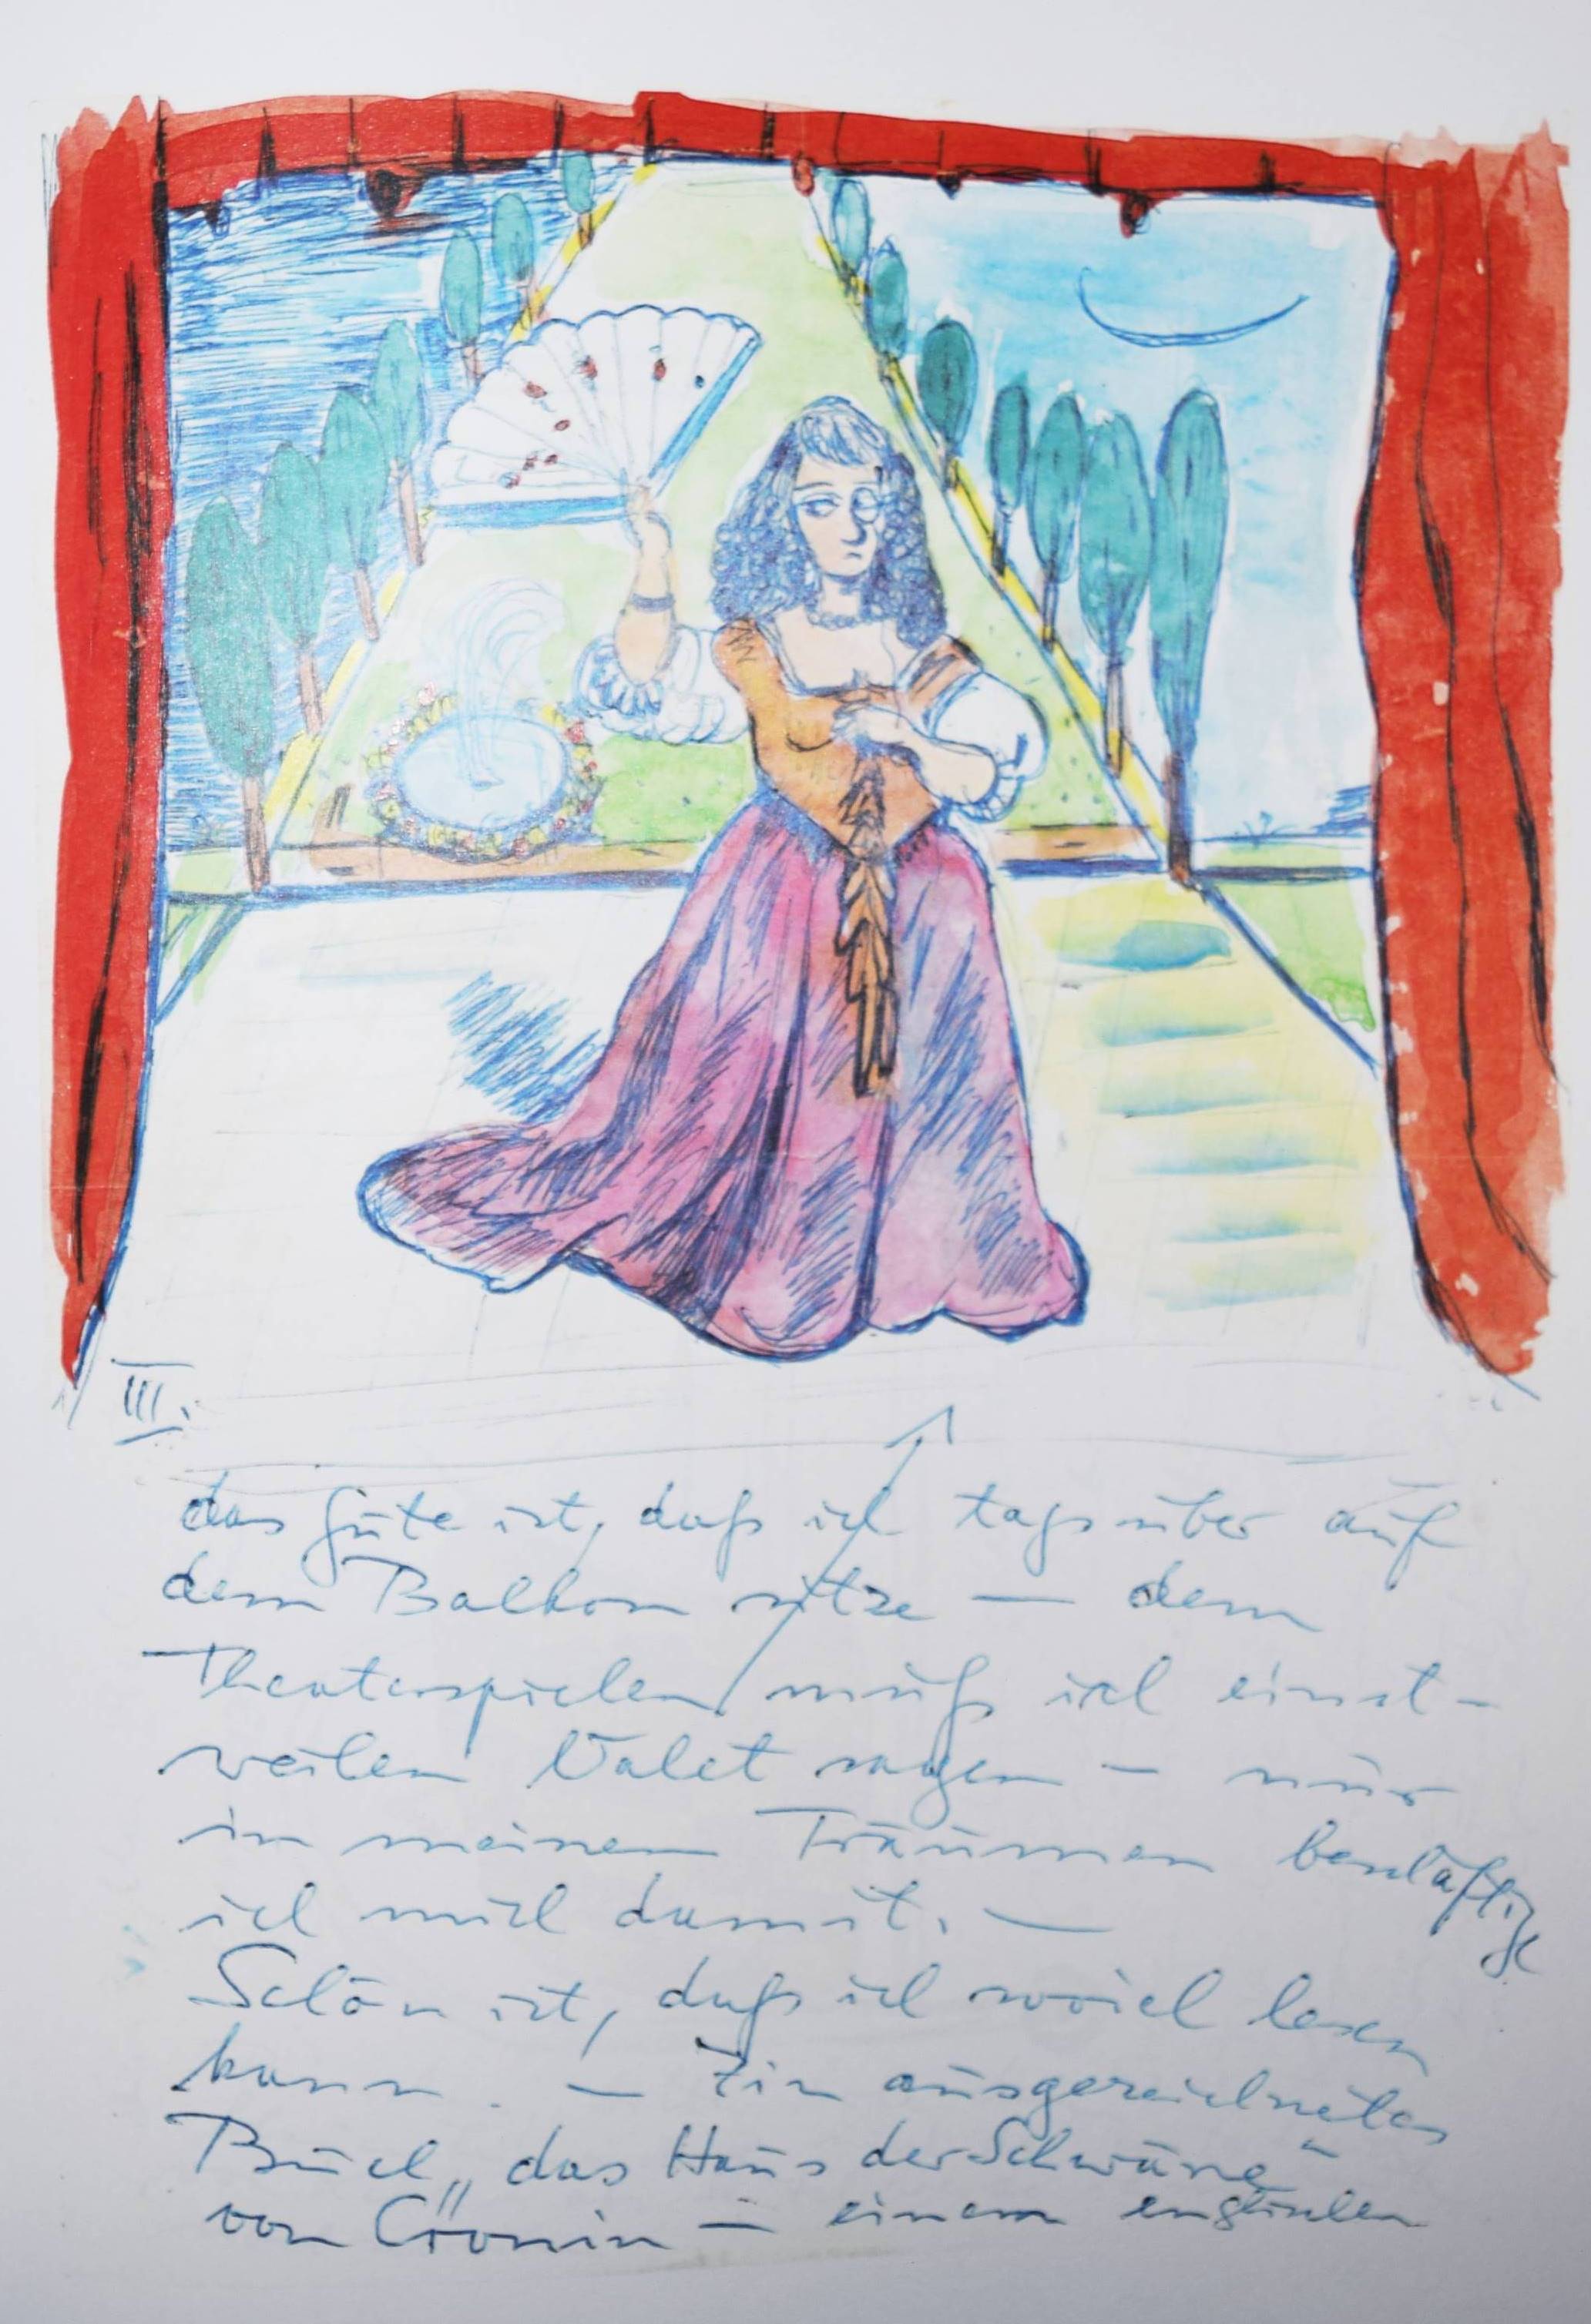 III.
das Gute ist, daß ich tagsüber auf
dem Balkon sitze — dem
Theaterspielen muß ich einst-
weilen Valet sagen — nur
in meinen Träumen beschäftige
ich mich damit. —
Schön ist, daß ich soviel lesen
kann. — Ein ausgezeichnetes
Buch „das Haus der Schwäne"
von Cronin — einem englischen